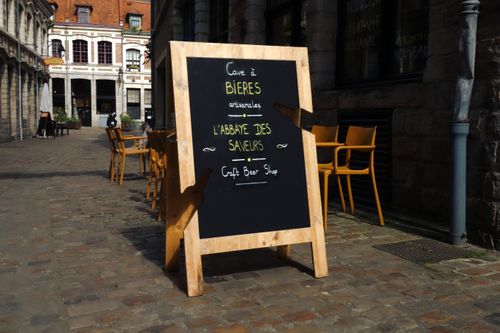 Cave à
BIÈRES
artisanales
L'ABBAYE DES
SAVEURS
Craft Beer Shop